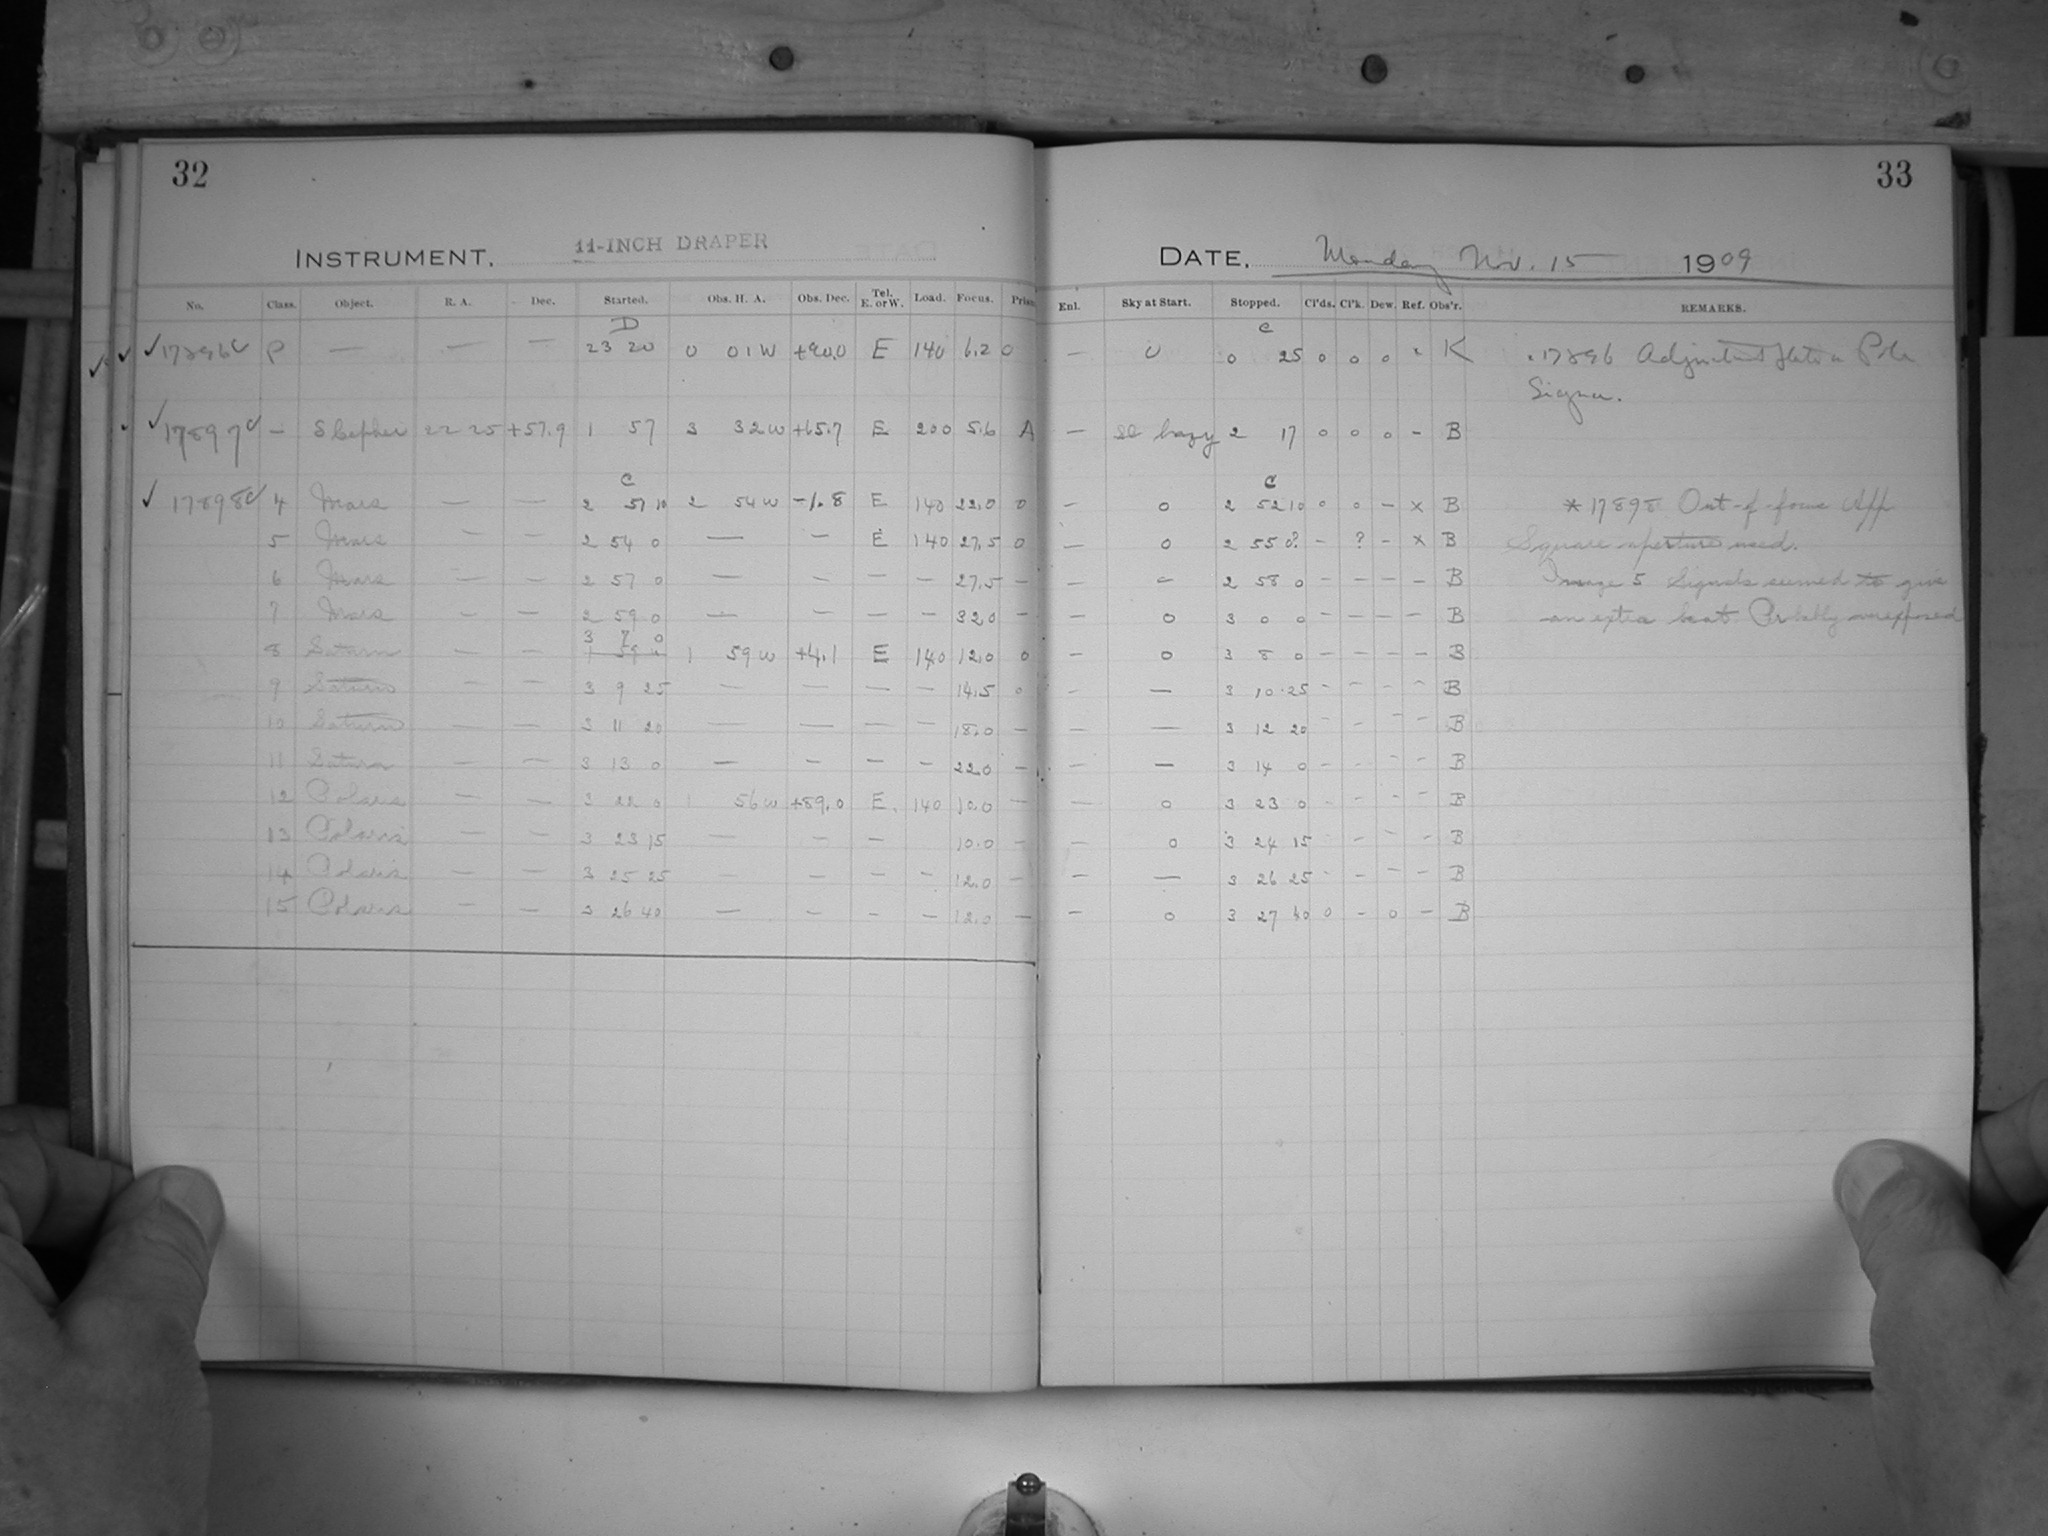 32
33
INSTRUMENT. 11-INCH DRAPER
DATE. Monday Nov. 15 1909
No. Class. Object. R. A. Dec. Started. Obs. H. A. Obs. Dec. Tel. E. or W. Load. Focus. Prism Enl. Sky at Start. Stopped. Cl'ds. Cl'k. Dew. Ref. Obs'r. REMARKS.
D C
✓ ✓ ✓ 17896 ✓ P — — — 23 20 0 01 W +90.0 E 140 6.2 0 — 0 0 25 0 0 0 × K × 17896 Adjustment plate on Pole
✓ 17897 ✓ — S Cephei 22 25 +57.9 1 57 3 32 W +65.7 E 200 5.6 A — Sl hazy 2 17 0 0 0 — B
C C
✓ 17898 ✓ 4 Mars — — 2 51 10 2 54 W -1.8 E 140 22.0 0 — 0 2 52 10 0 0 — × B * 17898 Out-of-focus App
5 Mars — — 2 54 0 — — E 140 27.5 0 — 0 2 55 0? — ? — × B Square aperture used.
6 Mars — — 2 57 0 — — — — 27.5 — — — 2 58 0 — — — — B Image 5 Signals seemed to give
7 Mars — — 2 59 0 — — — — 32.0 — — 0 3 0 0 — — — — B an extra beat. Probably overexposed
3 7 0
8 Saturn — — 1 59 0 1 59 W +4.1 E 140 12.0 0 — 0 3 8 0 — — — — B
9 Saturn — — 3 9 25 — — — — 14.5 0 — — 3 10 25 — — — — B
10 Saturn — — 3 11 20 — — — — 18.0 — — — 3 12 20 — — — — B
11 Saturn — — 3 13 0 — — — — 22.0 — — — 3 14 0 — — — — B
12 Polaris — — 3 22 0 1 56 W +89.0 E. 140 10.0 — — 0 3 23 0 — — — — B
13 Polaris — — 3 23 15 — — — 10.0 — — 0 3 24 15 — — — B
14 Polaris — — 3 25 25 — — — — 12.0 — — — 3 26 25 — — — — B
15 Polaris — — 3 26 40 — — — — 12.0 — — 0 3 27 40 0 — 0 — B